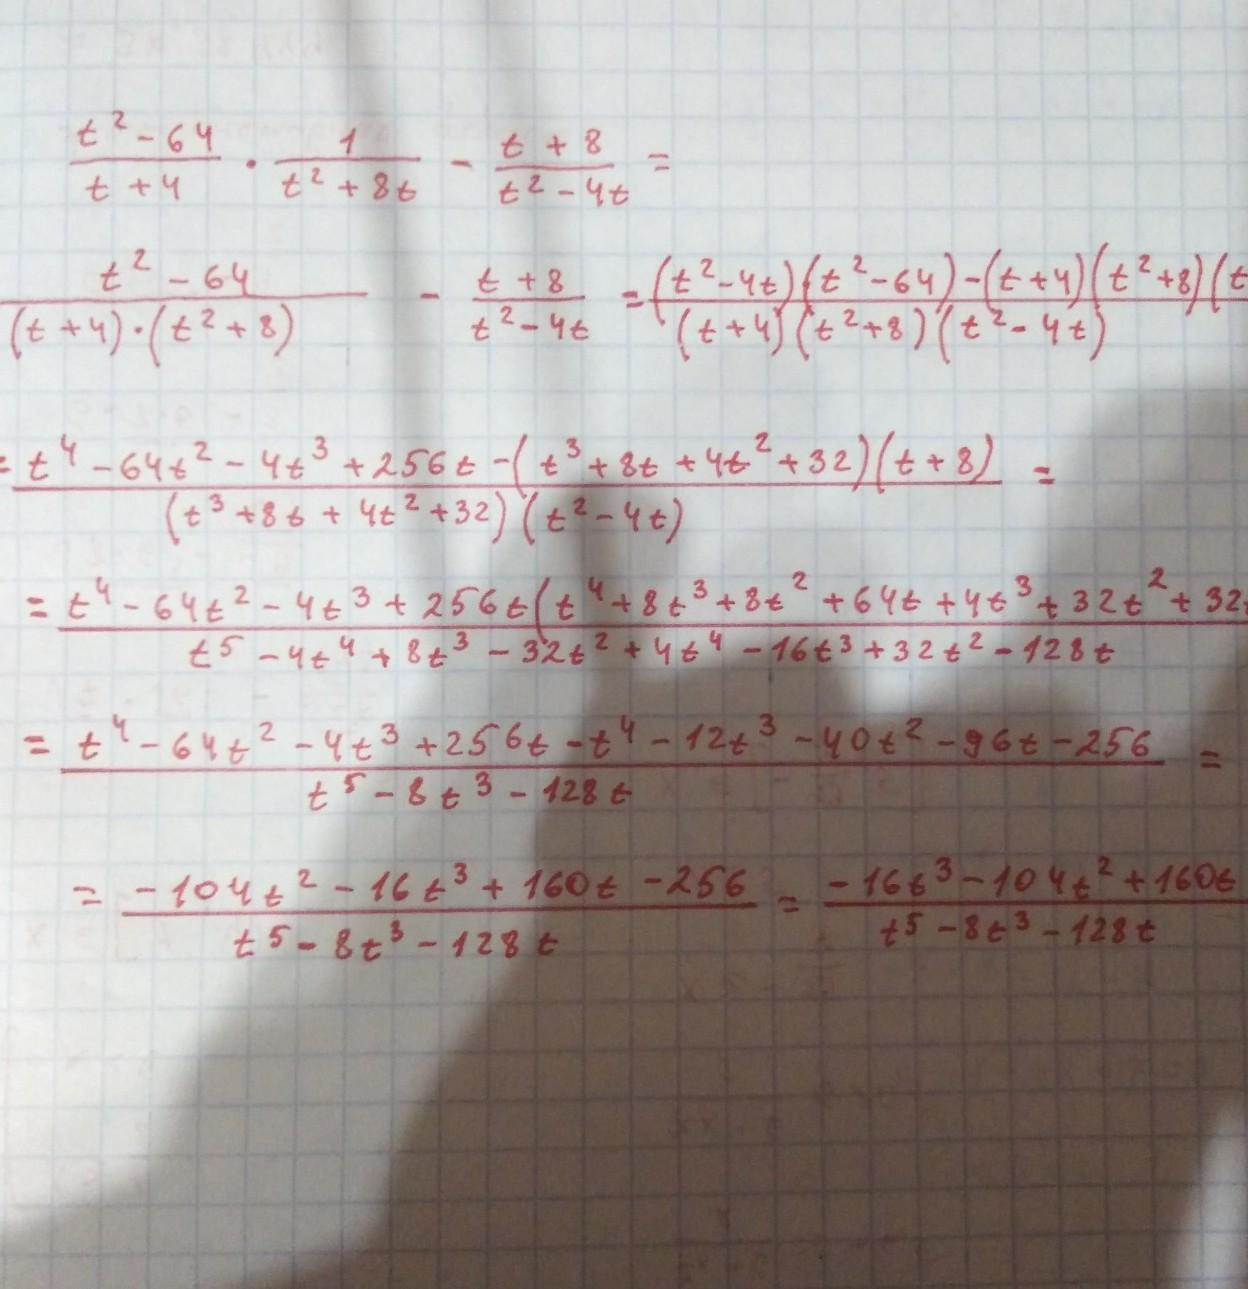 t² - 64 / t + 4 · 1 / t² + 8t - t + 8 / t² - 4t =
t² - 64 / (t + 4)·(t² + 8) - t + 8 / t² - 4t = (t² - 4t)(t² - 64) - (t + 4)(t² + 8)(t / (t + 4)(t² + 8)(t² - 4t)
= t⁴ - 64t² - 4t³ + 256t - (t³ + 8t + 4t² + 32)(t + 8) / (t³ + 8t + 4t² + 32)(t² - 4t) =
= t⁴ - 64t² - 4t³ + 256t(t⁴ + 8t³ + 8t² + 64t + 4t³ + 32t² + 32 / t⁵ - 4t⁴ + 8t³ - 32t² + 4t⁴ - 16t³ + 32t² - 128t
= t⁴ - 64t² - 4t³ + 256t - t⁴ - 12t³ - 40t² - 96t - 256 / t⁵ - 8t³ - 128t =
= -104t² - 16t³ + 160t - 256 / t⁵ - 8t³ - 128t = -16t³ - 104t² + 160t / t⁵ - 8t³ - 128t